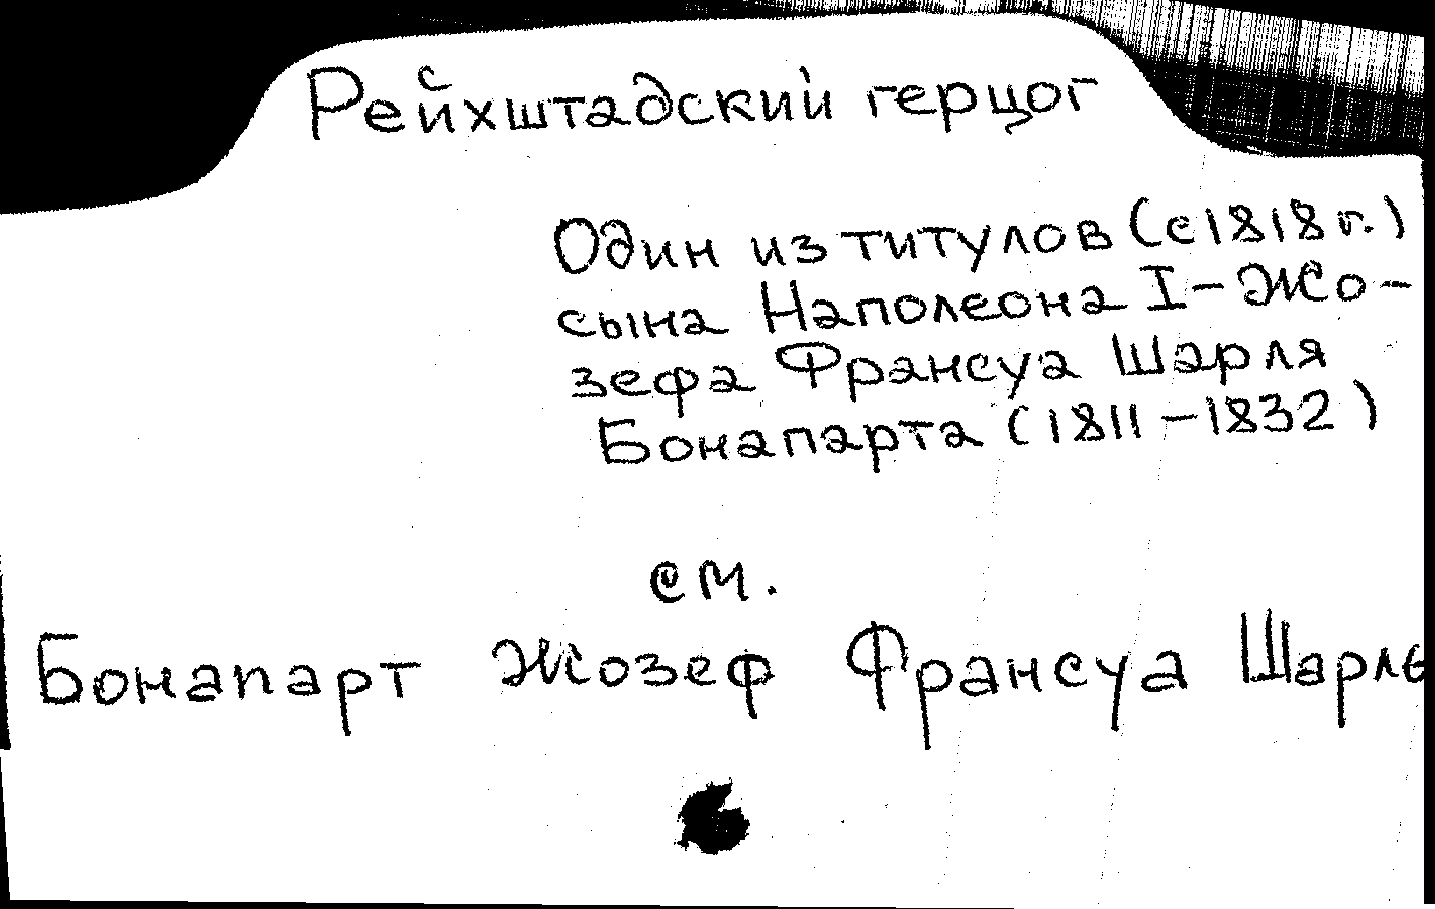 Рейхштадский герцог
Один из титулов (с 1818 г.)
сына Наполеона I - Жо-
зефа Франсуа Шарля
Бонапарта (1811-1832)
см.
Бонапарт Жозеф Франсуа Шарль